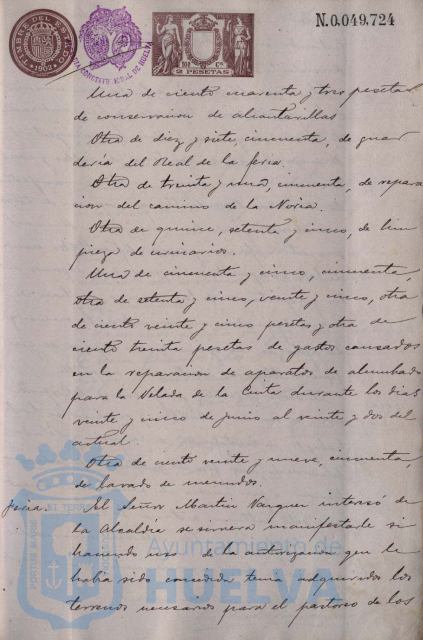 TIMBRE DEL ESTADO
1902
N.0.049,724
2 PESETAS
Una de ciento cuarenta y tres pesetas
de conservacion de alcantarillas
Otra de diez y siete, cincuenta, de guar
dería del Real de la feria.
Otra de treinta y una, cincuenta, de repara
cion del camino de la Noria.
Otra de quince, setenta y cinco, de lim
pieza de urinarios.
Una de cincuenta y cinco, cincuenta,
otra de setenta y cinco, veinte y cinco, otra
de ciento veinte y cinco pesetas y otra de
ciento treinta pesetas de gastos causados
en la reparacion de aparatos de alumbrado
para la Velada de la Cinta durante los dias
veinte y cinco de Junio al veinte y dos del
actual.
Otra de ciento veinte y nueve, cincuenta,
de lavado de menudos.
Feria. El Señor Martin Vazquez interesó de
la Alcaldía se sirviera manifestarle si
haciendo uso de la autorizacion que le
había sido concedida tenia adquiridos los
terrenos necesarios para el pastoreo de los
Ayuntamiento de
HUELVA